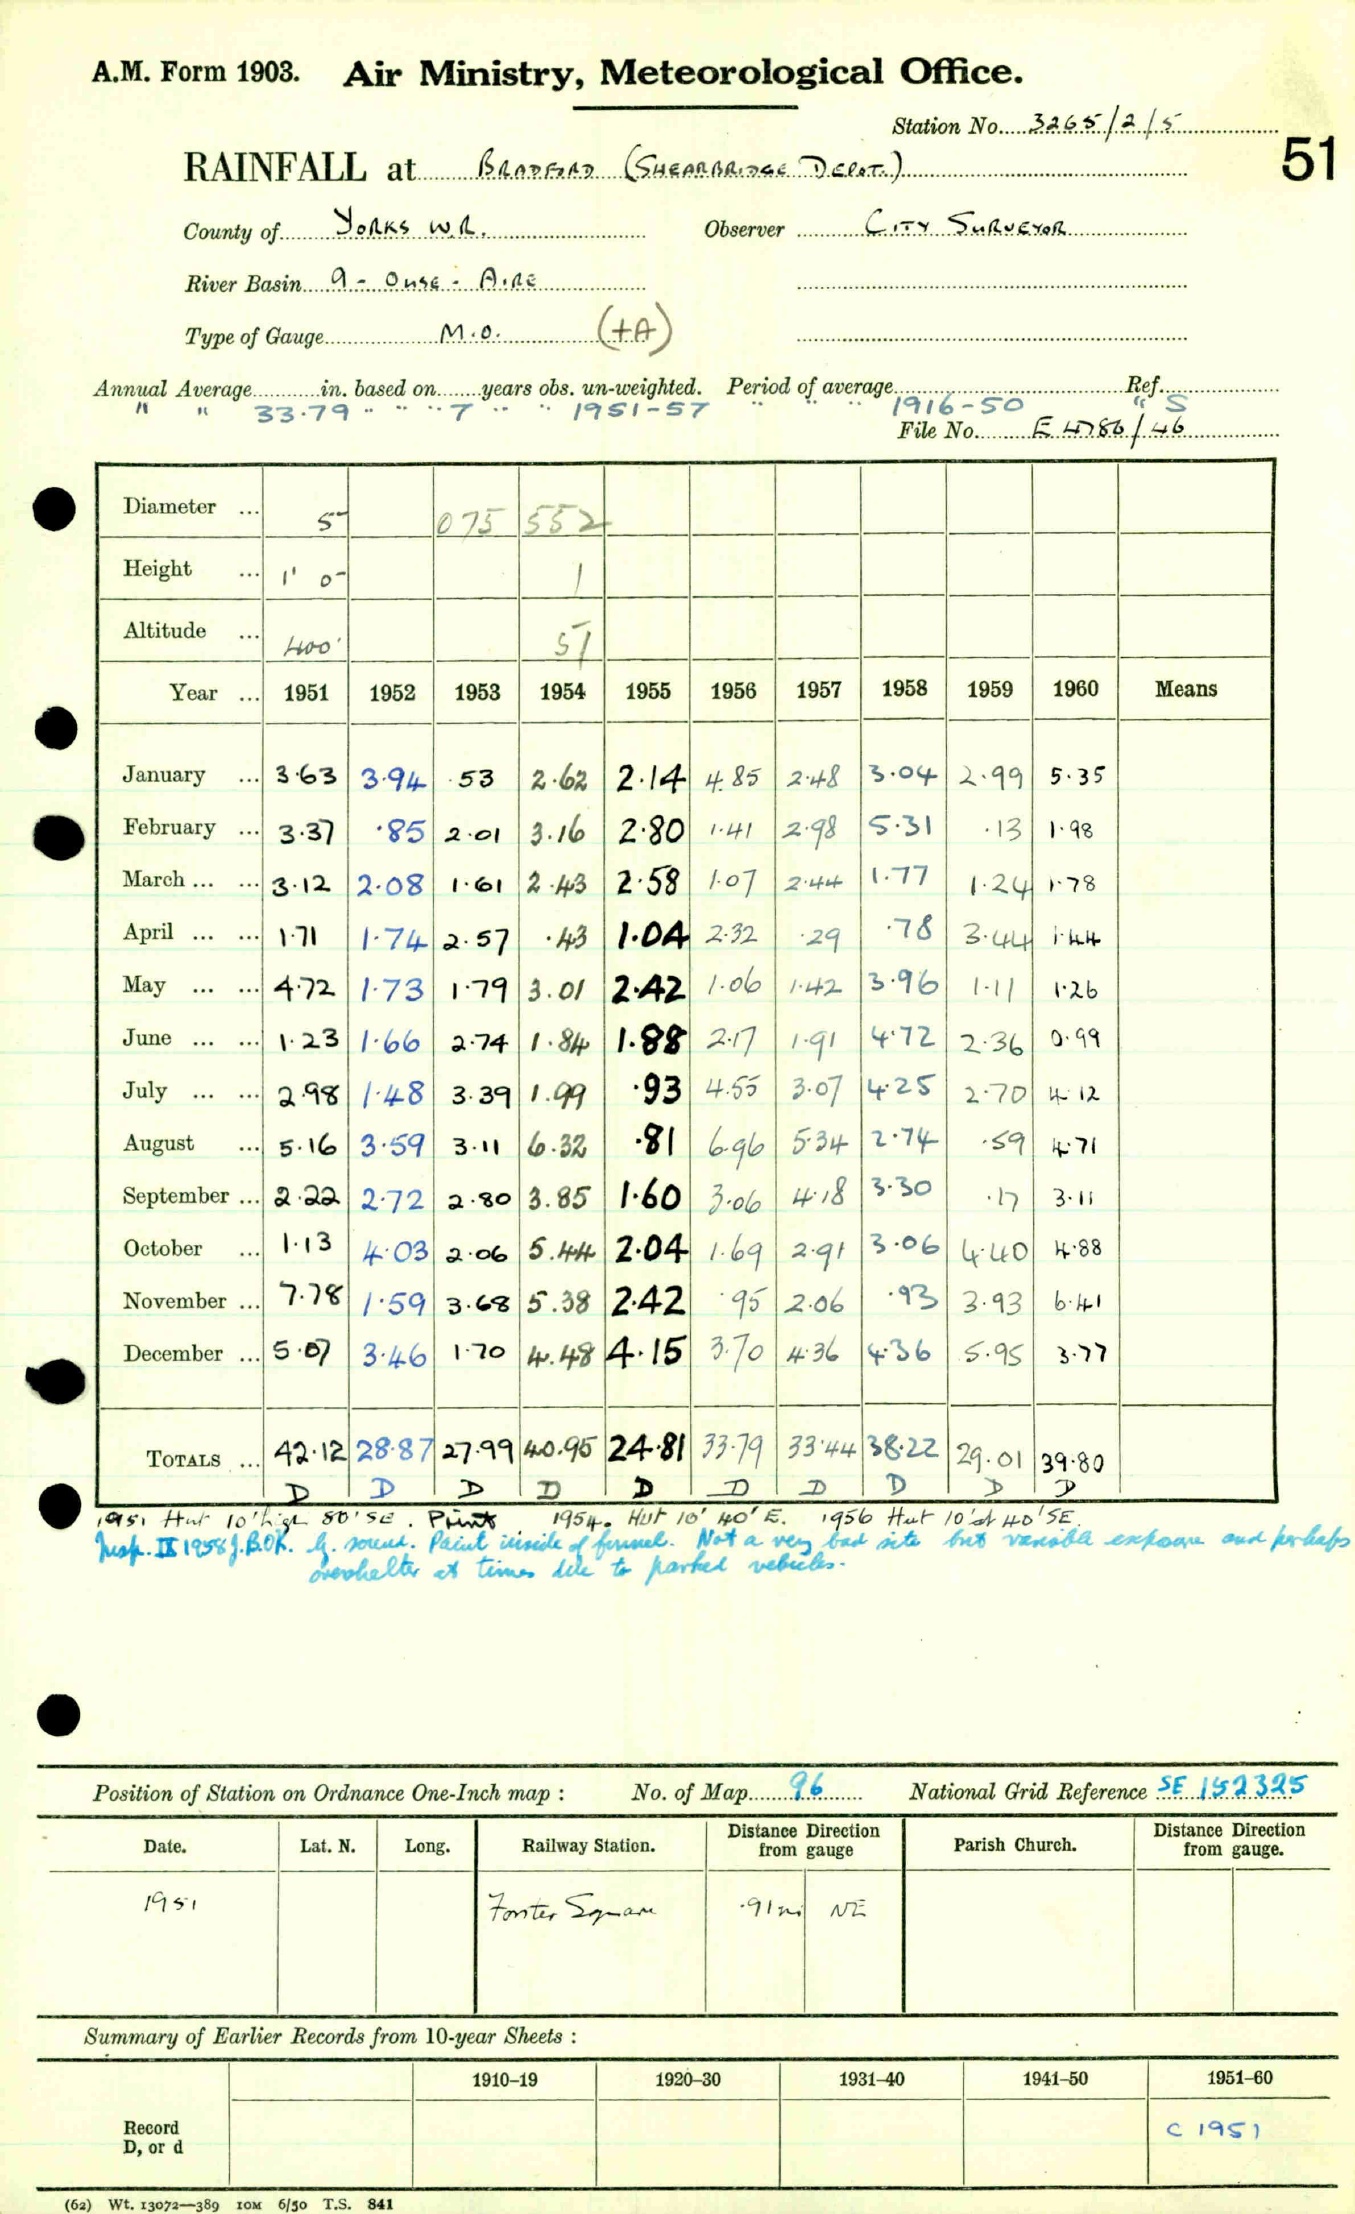 A.M. Form 1903. Air Ministry, Meteorological Office.
Station No. 3265/2/5
51
RAINFALL at BRADFORD (SHEARBRIDGE DEPOT.)
County of YORKS W.R. Observer CITY SURVEYOR
River Basin 9 - OUSE - AIRE
Type of Gauge M.O. (+A)
Annual Average in. based on years obs. un-weighted. Period of average Ref.
" " 33.79 " " " 7 " " 1951-57 " " " 1916-50 " S
File No. E 4786/46
Diameter ... 5" 075 552
Height ... 1' 0" 1
Altitude ... 400' 51
Year ... 1951 1952 1953 1954 1955 1956 1957 1958 1959 1960 Means
January ... 3.63 3.94 .53 2.62 2.14 4.85 2.48 3.04 2.99 5.35
February ... 3.37 .85 2.01 3.16 2.80 1.41 2.98 5.31 .13 1.98
March ... ... 3.12 2.08 1.61 2.43 2.58 1.07 2.44 1.77 1.24 1.78
April ... ... 1.71 1.74 2.57 .43 1.04 2.32 .29 .78 3.44 1.44
May ... ... 4.72 1.73 1.79 3.01 2.42 1.06 1.42 3.96 1.11 1.26
June ... ... 1.23 1.66 2.74 1.84 1.88 2.17 1.91 4.72 2.36 0.99
July ... ... 2.98 1.48 3.39 1.99 .93 4.55 3.07 4.25 2.70 4.12
August ... 5.16 3.59 3.11 6.32 .81 6.96 5.34 2.74 .59 4.71
September ... 2.22 2.72 2.80 3.85 1.60 3.06 4.18 3.30 .17 3.11
October ... 1.13 4.03 2.06 5.44 2.04 1.69 2.91 3.06 4.40 4.88
November ... 7.78 1.59 3.68 5.38 2.42 .95 2.06 .93 3.93 6.41
December ... 5.07 3.46 1.70 4.48 4.15 3.70 4.36 4.36 5.95 3.77
TOTALS ... 42.12 28.87 27.99 40.95 24.81 33.79 33.44 38.22 29.01 39.80
D D D D D D D D D D
1951 Hut 10' high 80' SE. 1954. HUT 10' 40' E. 1956 Hut 10' at 40' SE.
Insp. IX 1958 J.B.OK. G. sound. Paint inside of funnel. Not a very bad site but variable exposure and perhaps
overshelter at times due to parked vehicles.
Position of Station on Ordnance One-Inch map : No. of Map 96 National Grid Reference SE 152325
Date. Lat. N. Long. Railway Station. Distance Direction from gauge Parish Church. Distance Direction from gauge.
1951 Forster Square .91mi NE
Summary of Earlier Records from 10-year Sheets :
1910–19 1920–30 1931–40 1941–50 1951–60
Record D, or d C 1951
(62) Wt. 13072—389 10M 6/50 T.S. 841